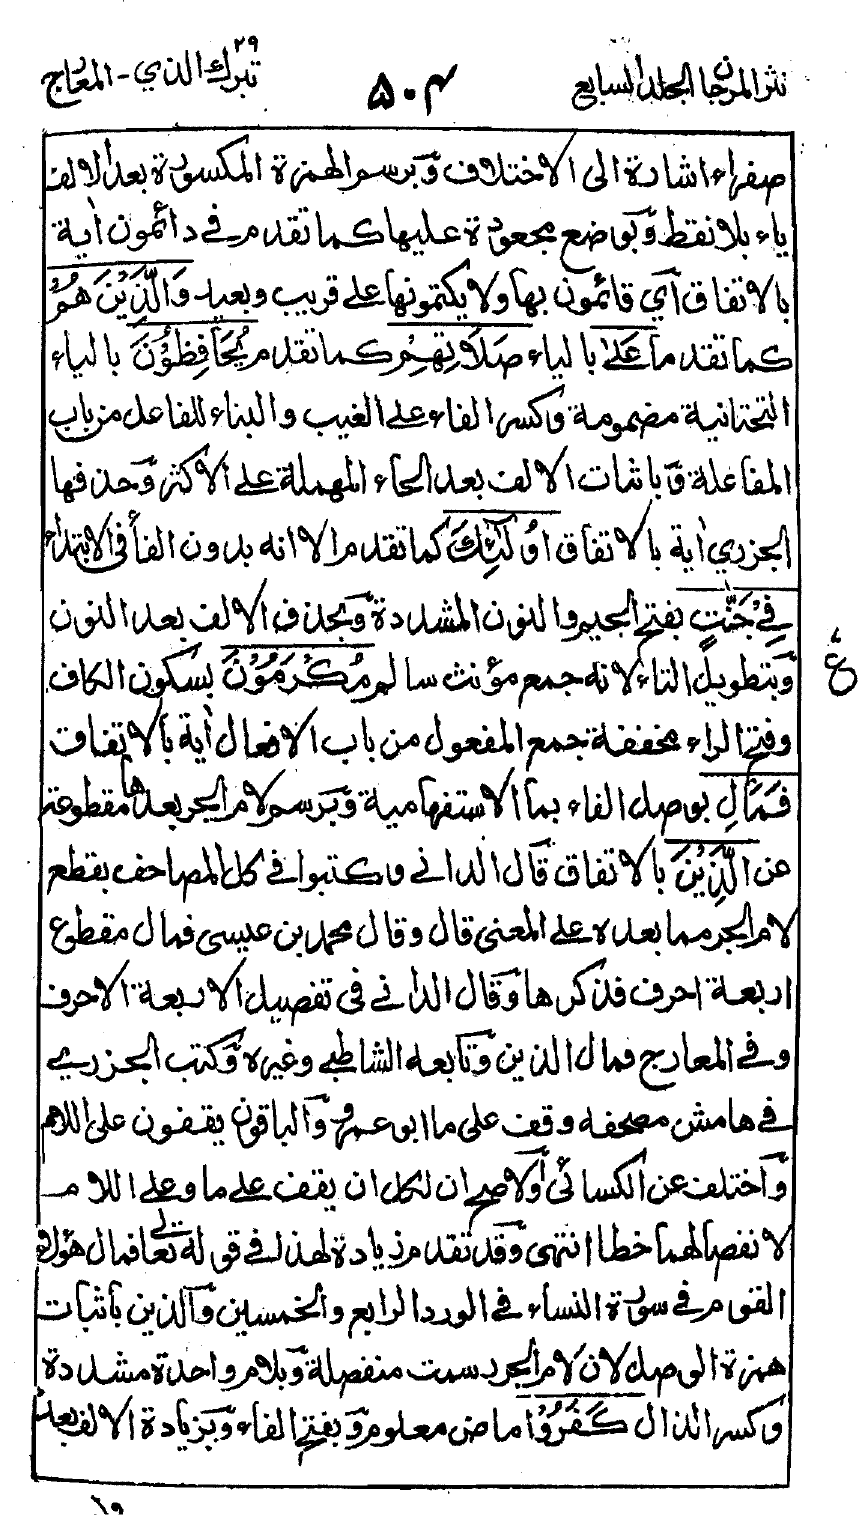 نثر المرجان الجلد السابع
۵۰۴
۲۹
تبرك الذي - المعارج
صفراء اشارة الى الاختلاف وبرسم الهمزة المكسورة بعد الالف
ياء بلا نقط وبوضع مجعودة عليها كما تقدم في دائمون اٰية
بالاتفاق اي قائمون بها ولا يكتمونها على قريب وبعيد وَالَّذِيْنَ هُمْ
كما تقدم عَلٰى بالياء صَلَاتِهِمْ كما تقدم يُحَافِظُوْنَ بالياء
التحتانية مضمومة وكسر الفاء على الغيب والبناء للفاعل من باب
المفاعلة وباثبات الالف بعد الحاء المهملة على الاكثر وحذفها
الجزري اٰية بالاتفاق اُولٰٓئِكَ كما تقدم الا انه بدون الفا في الابتداء
فِيْ جَنّٰتٍ بفتح الجيم والنون المشددة وبحذف الالف بعد النون
وبتطويل التاء لانه جمع مؤنث سالم مُكْرَمُوْنَ بسكون الكاف
وفتح الراء مخففة جمع المفعول من باب الافعال اٰية بالاتفاق
فَمَالِ بوصل الفاء بما الاستفهامية وبرسم لام الجر بعدها مقطوعة
عن الَّذِيْنَ بالاتفاق قال الداني وكتبوا في كل المصاحف بقطع
لام الجر مما بعده على المعنى قال وقال محمد بن عيسى فمال مقطوع
اربعة احرف فذكرها وقال الداني في تفصيل الاربعة الاحرف
وفي المعارج فمال الذين وتابعه الشاطبي وغيره وكتب الجزري
في هامش مصحفه وقف على ما ابو عمرو والباقون يقفون على اللام
واختلف عن الكسائي والاصح ان لكل ان يقف على ما وعلى اللام
لانفصالهما خطا انتهى وقد تقدم زيادة لهذا في قوله تعالى فمال هؤلاء
القوم في سورة النساء في الورد الرابع والخمسين والذين باثبات
همزة الوصل لان لام الجر رسمت منفصلة وبلام واحدة مشددة
وكسر الذال كَفَرُوْا ماض معلوم وبفتح الفاء وبزيادة الالف بعد
ع